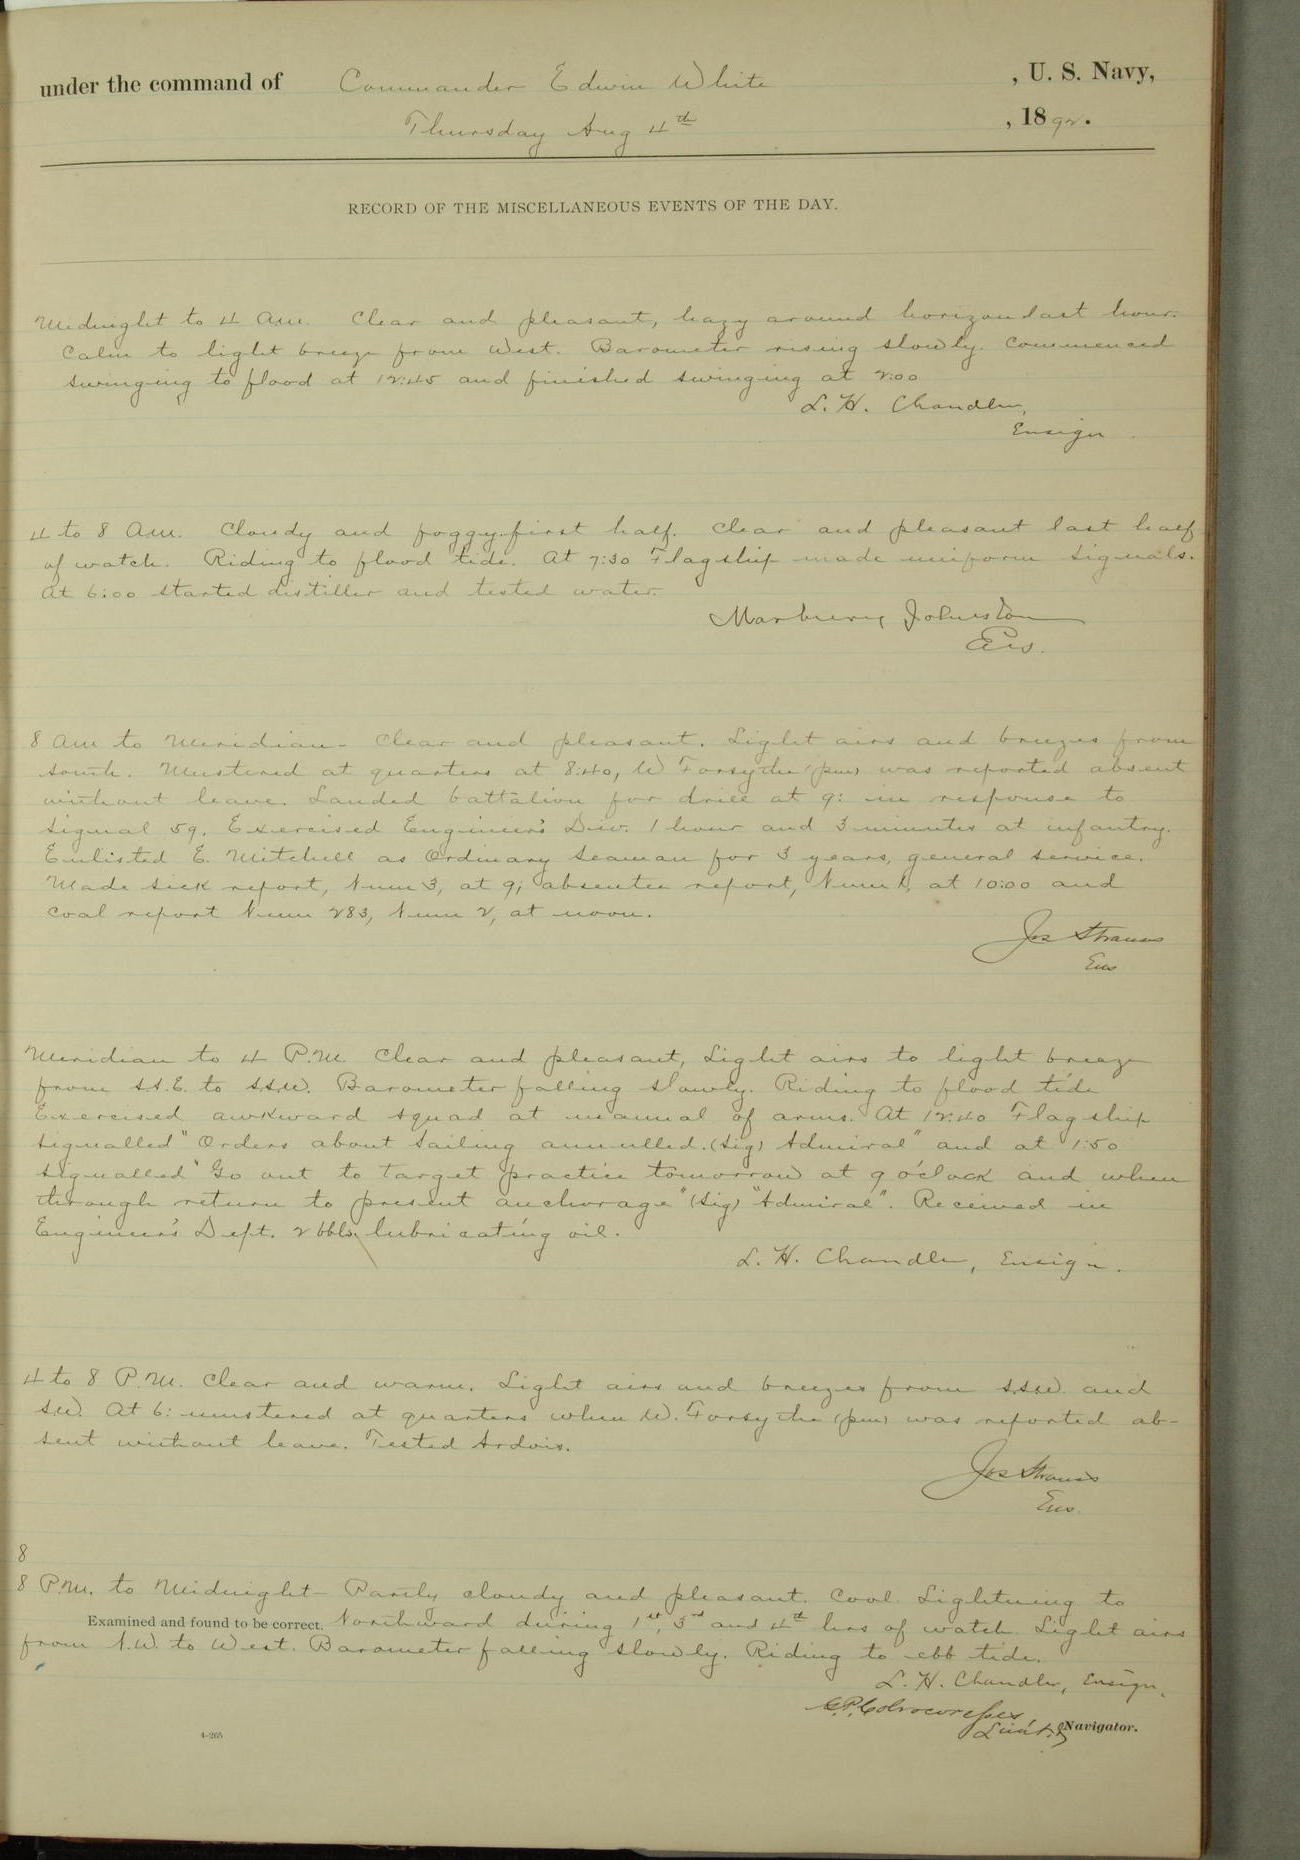 under the command of Commander Edwin White, U. S. Navy,
Thursday Aug 4th, 1892.
RECORD OF THE MISCELLANEOUS EVENTS OF THE DAY.
Midnight to 4 A.M. Clear and pleasant, hazy around horizon last hour.
Calm to light breeze from West. Barometer rising slowly. Commenced
swinging to flood at 12:45 and finished swinging at 2:00
L. H. Chandler,
Ensign
4 to 8 A.M. Cloudy and foggy first half. Clear and pleasant last half
of watch. Riding to flood tide. At 7:30 Flagship made uniform signals.
At 6:00 started distiller and tested water.
Marbury Johnston
Ens.
8 AM to Meridian - Clear and pleasant. Light airs and breezes from
south. Mustered at quarters at 8:40, W Forsythe (pm) was reported absent
without leave. Landed battalion for drill at 9: in response to
signal 59. Exercised Engineer's Div. 1 hour and 3 minutes at infantry.
Enlisted E. Mitchell as Ordinary Seaman for 3 years, general service.
Made sick report, Num 3, at 9; absentee report, Num 1, at 10:00 and
coal report Num 283, Num 2, at noon.
Jos Strauss
Ens
Meridian to 4 P.M. Clear and pleasant, Light airs to light breeze
from S.S.E. to S.S.W. Barometer falling slowly. Riding to flood tide
Exercised awkward squad at manual of arms. At 12:40 Flagship
signalled "Orders about sailing annulled. (Sig) Admiral" and at 1:50
signalled "Go out to target practice tomorrow at 9 o'clock and when
through return to present anchorage" (Sig) "Admiral". Received in
Engineer's Dept. 2 bbls. lubricating oil.
L. H. Chandler, Ensign.
4 to 8 P.M. Clear and warm. Light airs and breezes from S.S.W. and
S.W. At 6: mustered at quarters when W. Forsythe (pm) was reported ab-
sent without leave. Tested Ardois.
Jos Strauss
Ens.
8
8 P.M. to Midnight - Partly cloudy and pleasant. Cool. Lightning to
Examined and found to be correct. Northward during 1st, 3rd and 4th hrs of watch. Light airs
from N.W. to West. Barometer falling slowly. Riding to ebb tide.
L. H. Chandler, Ensign.
Lieut., Navigator.
4-265